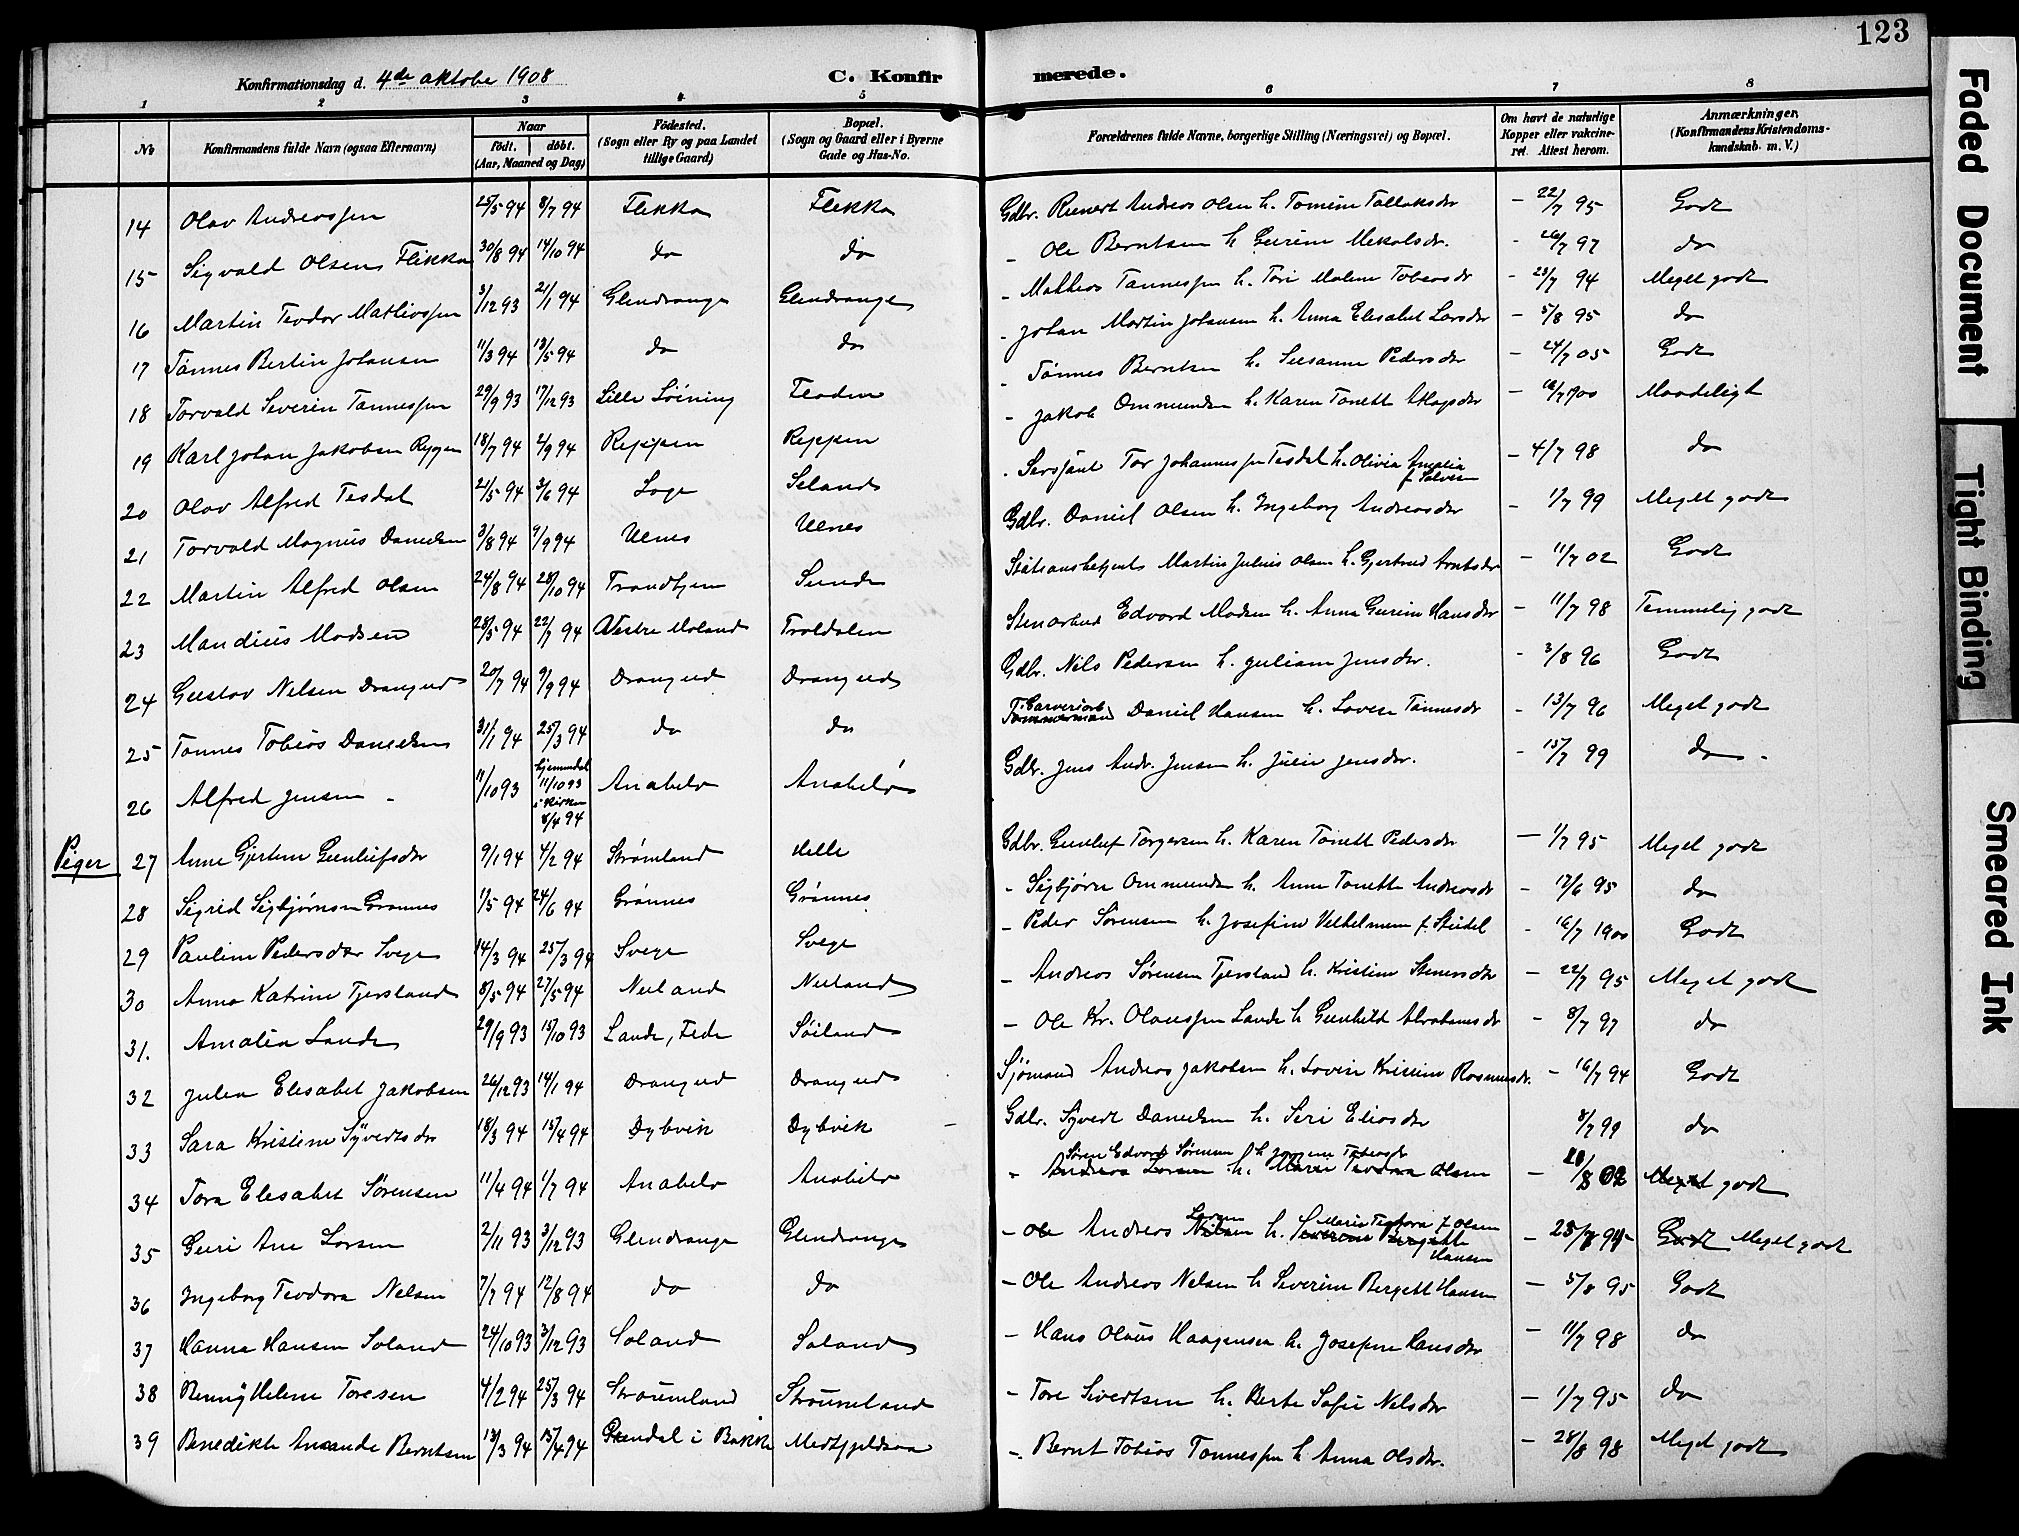 123
Konfirmationsdag d. 4de oktobe 1908
C. Konfirmerede.
1 2 3 4 5 6 7 8
№ Konfirmandens fulde Navn (ogsaa Efternavn) Naar født. døbt. (Aar, Maaned og Dag) Fødested. (Sogn eller By og paa Landet tillige Gaard) Bopæl. (Sogn og Gaard eller i Byerne Gade og Hus-No. Forældrenes fulde Navne, borgerlige Stilling (Næringsvei) og Bopæl. Om havt de naturlige Kopper eller vakcineret. Attest herom. Anmærkninger. (Konfirmandens Kristendomskundskab. m. V.)
14 Olav Andreassen 25/5 94 8/7 94 Flikka Flikka Gdbr. Reinert Andreas Olsen h. Tomine Tallaksdr – 22/7 95 Godt
15 Sigvald Olsen Flikka 30/8 94 14/10 94 do do – Ole Berntsen h. Gurine Mekalsdr. - 26/7 97 do
16 Martin Teodor Mathiassen 3/12 93 21/1 94 Glendrange Glendrange - Mathias Tønnessen h. Tori Malene Tobiasdr - 23/7 94 Meget godt
17 Tønnes Bertin Johansen 11/3 94 13/5 94 do do - Johan Martin Johansen h. Anna Elisabet Larsdr – 5/8 95 do
18 Torvald Severin Tønnessen 29/9 93 17/12 93 Lille Løining Flaaden - Tønnes Berntsen h. Susanne Pedersdr – 24/7 05 Godt
19 Karl Johan Jakobsen 18/7 94 2/9 94 Reppen Reppen - Jakob Ommundsen h. Karen Tonette Aslagsdr – 16/7 1900 Maadeligt
20 Olav Alfred Tesdal 21/5 94 3/6 94 Loge Seland - Sersjant Tor Johannessen Tesdal h. Olivia Amalia f. Salvesen – 4/7 98 do
21 Torvald Magnus Danielsen 3/8 94 9/9 94 Ulnes Ulnes Gdbr. Daniel Olsen h. Ingeborg Andreasdr – 1/7 99 Meget godt
22 Martin Alfred Olsen 24/8 94 28/10 94 Trondhjem Sunde Stationsbetjent Martin Julius Olsen h. Gjertrud Arntsdr – 11/7 02 Godt
23 Mandius Madsen 28/5 94 22/7 94 Vestre Moland Troldalen Stenarbeid Edvard Madsen h. Anna Gurine Hansdr – 11/7 98 Temmelig godt
24 Gustav Nilsen Drangeid 20/7 94 9/9 94 Drangeid Drangeid Gdbr. Nils Pedersen h. Juliane Jensdr. - 3/8 96 Godt
25 Tønnes Tobias Danielsen 31/1 94 25/3 94 do do Garveriarb Tømmermand Daniel Hansen h. Lovise Tønnesdr – 13/7 96 Meget godt
26 Alfred Jensen - 11/10 93 hjemmedøbt 11/10 93 i Kirken 8/4 94 Anabelø Anabelø Gdbr. Jens Andr. Jensen h. Julie Jensdr. - 15/7 99 do -
Piger 27 Anne Gjertine Gunleifsdr 9/1 94 4/2 94 Strømland Helle Gdbr. Gunleif Torgersen h. Karen Tonette Pedersdr – 1/7 95 Meget godt
28 Sigrid Sigbjørnsen Grønnes 1/5 94 24/6 94 Grønnes Grønnes - Sigbjørn Ommundsen h. Anne Tonette Andreasdr – 17/6 95 do
29 Pauline Pedersdtr Svege 14/3 94 25/3 94 Svege Svege – Peder Sørensen h. Josefine Vilhelmine f. Steidel - 16/7 1900 Godt
30 Anna Katrine Tjersland 8/5 94 27/5 94 Nuland Nuland – Andreas Sørensen Tjersland h. Kristine Stenersdr – 22/7 95 Meget godt
31. Amalia Lande 29/9 93 15/10 93 Lande, Fede Søiland – Ole Kr. Olaussen Lande h Gunhild Abrahamsdr – 8/7 97 do
32 Julia Elisabet Jakobsen 26/12 93 14/1 94 Drangeid Drangeid Sjømand Andreas Jakobsen h. Lovise Kristine Rasmusdr. – 16/7 94 Godt
33 Sara Kristine Syvertsdr 18/3 94 15/4 94 Dybvik Dybvik – Gdbr. Syvert Danielsen h. Seri Eliasdr 8/7 99 do
34 Tora Elisabet Sørensen 11/4 94 1/7 94 Anabelø Anabelø Søren Edvard Sørensen h Jorgine Tobiasdr
- Andreas Larsen h. Marie Teodora Olsen – 20/8 02 Meget godt
35 Guri Ane Larsen 2/11 93 3/12 93 Glendrange Glendrange – Ole Andreas Nilsen Larsen h. Severine Bergette Hansen Marie Teodora f Olsen – 25/7 94 Godt Meget godt
36 Ingeborg Teodora Nelsen 7/7 94 12/8 94 do do – Ole Andreas Nelsen h Severine Bergette Hansen – 5/8 95 Godt
37 Hanna Hansen Soland 24/10 93 3/12 93 Soland Soland – Hans Olaus Haagensen h. Josefine Hansdr – 11/7 98 do
38 Helene Toresen 4/2 94 25/3 94 Straumland Straumland – Tore Sivertsen h. Berte Sofie Nelsdr – 1/7 95 do
39 Benedikte Amande Berntsen 13/3 94 15/4 94 i Bakke Medfjeldsaa – Bernt Tobias Tønnessen h Anna Olsdr. – 28/8 98 Meget godt
Faded Document
Tight Binding
Smeared Ink